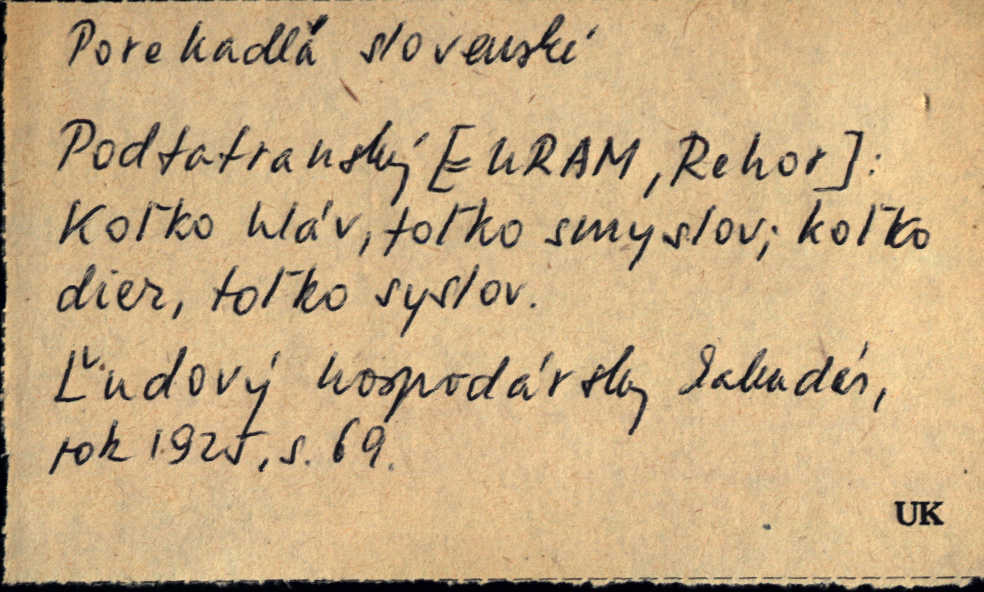 Porekadlá slovenské
Podtatranský [= URAM, Rehor]:
Koľko hláv, toľko smyslov; koľko
dier, toľko syslov.
Ľudový hospodársky kalendár,
rok 1925, s. 69.
UK